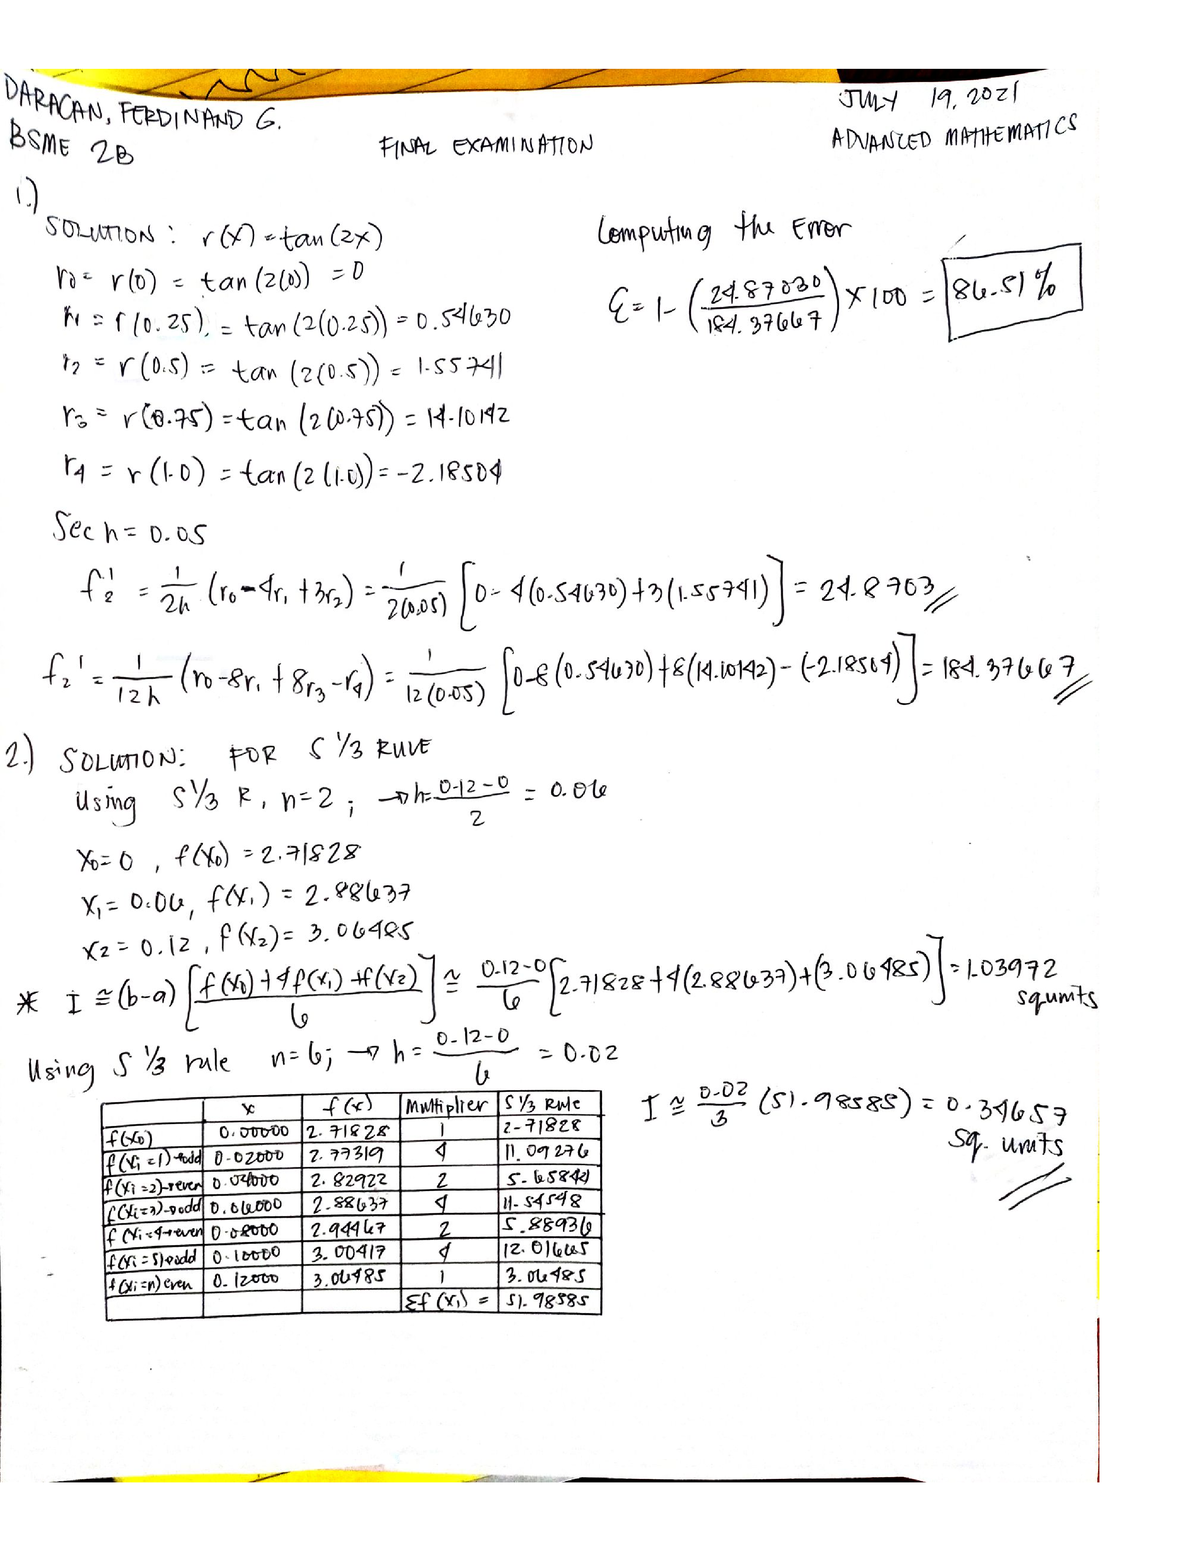 DARACAN, FERDINAND G.
BSME 2B
FINAL EXAMINATION
JULY 19, 2021
ADVANCED MATHEMATICS
1.)
SOLUTION : r(x) = tan (2x)
r0 = r(0) = tan (2(0)) = 0
r1 = r(0.25) = tan (2(0.25)) = 0.54630
r2 = r(0.5) = tan (2(0.5)) = 1.55741
r3 = r(0.75) = tan (2(0.75)) = 14.10142
r4 = r(1.0) = tan (2(1.0)) = -2.18504
Computing the Error
ε = 1 - (24.87030 / 184.37667) x 100 = 86.51 %
Sec h = 0.05
f2' = 1/2h (r0 - 4r1 + 3r2) = 1/2(0.05) [0 - 4(0.54630) + 3(1.55741)] = 24.8703
f2' = 1/12h (r0 - 8r1 + 8r3 - r4) = 1/12(0.05) [0-8(0.54630) + 8(14.10142) - (-2.18504)] = 184.37667
2.) SOLUTION: FOR S 1/3 RULE
Using S 1/3 R, n=2 ; → h = 0.12-0 / 2 = 0.06
x0 = 0 , f(x0) = 2.71828
x1 = 0.06, f(x1) = 2.88637
x2 = 0.12 , f(x2) = 3.06485
* I ≅ (b-a) [f(x0) + 4f(x1) + f(x2) / 6] ≅ 0.12-0 / 6 [2.71828 + 4(2.88637) + (3.06485)] = 1.03972
squnits
Using S 1/3 rule n=6; → h = 0.12-0 / 6 = 0.02
x f(x) Multiplier S 1/3 Rule
f(x0) 0.00000 2.71828 1 2.71828
f(xi =1)→odd 0.02000 2.77319 4 11.09276
f(xi =2)→even 0.04000 2.82922 2 5.65844
f(xi=3)→odd 0.06000 2.88637 4 11.54548
f(xi=4→even 0.08000 2.94467 2 5.88936
f(xi=5)→odd 0.10000 3.00417 4 12.01665
f(xi=n) even 0.12000 3.06485 1 3.06485
Σf(xi) = 51.98585
I ≅ 0.02 / 3 (51.98585) = 0.34657
sq. units